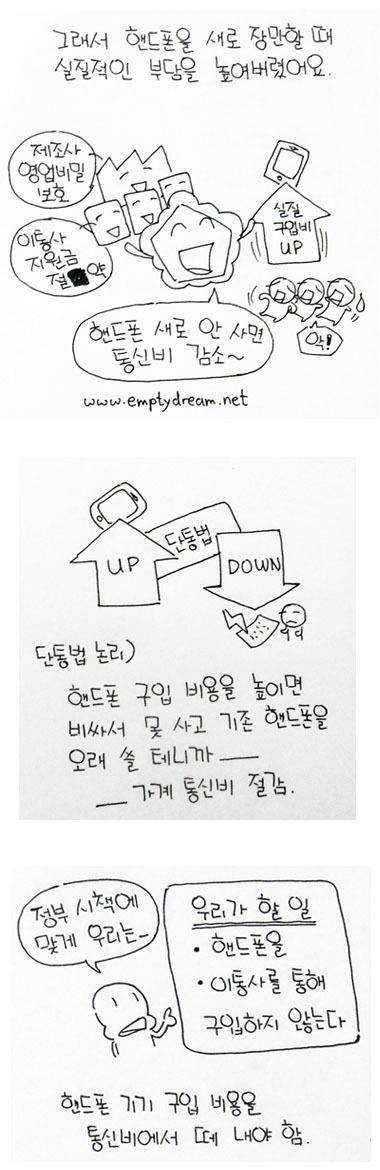 그래서 핸드폰을 새로 장만할 때
실질적인 부담을 높여버렸어요.
제조사
영업비밀
보호
이통사
지원금
절약
실질
구입비
UP
악!
핸드폰 새로 안 사면
통신비 감소~
www.emptydream.net
UP
단통법
DOWN
단통법 논리)
핸드폰 구입 비용을 높이면
비싸서 못 사고 기존 핸드폰을
오래 쓸 테니까 ——
—— 가계 통신비 절감.
정부 시책에
맞게 우리는-
우리가 할 일
• 핸드폰을
• 이통사를 통해
구입하지 않는다
핸드폰 기기 구입 비용을
통신비에서 떼 내야 함.